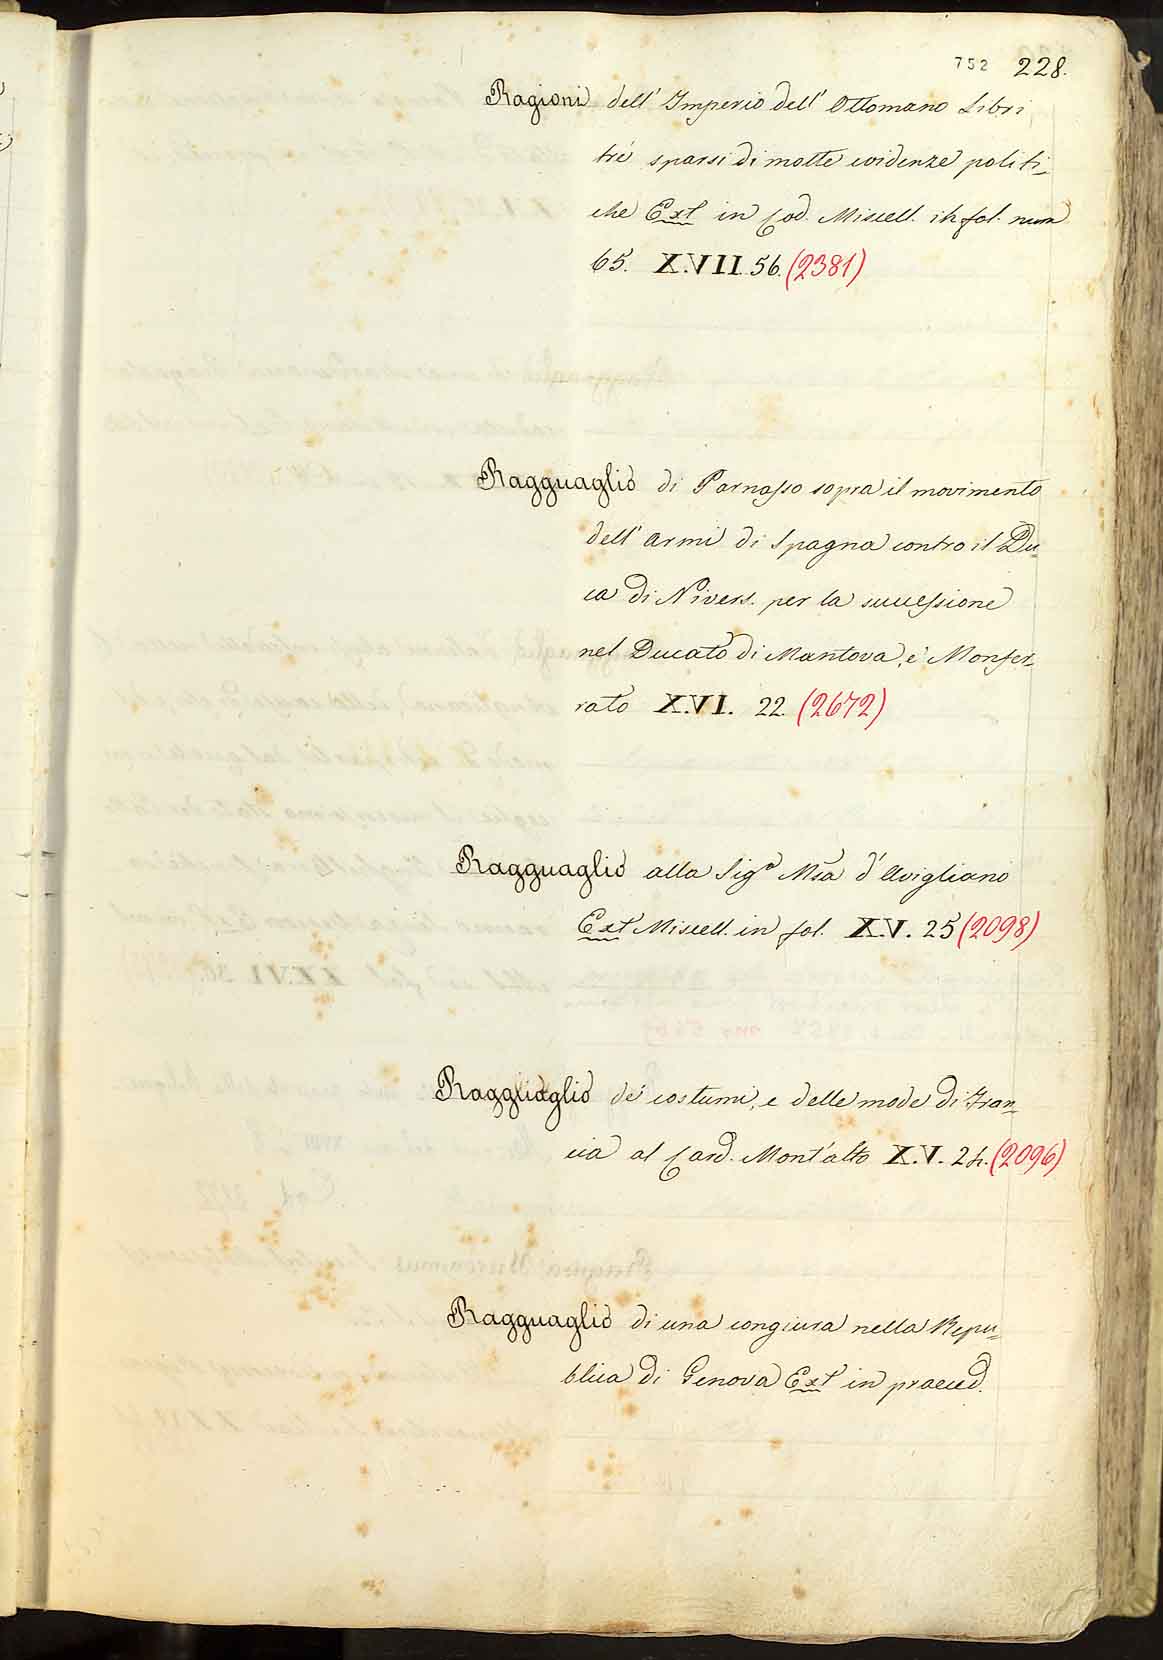 752 228.
Ragioni dell' Imperio dell' Ottomano Libri
tré sparsi di molte evidenze politi-
che Ext in Cod. Miscell. in fol. num
65. X.VII. 56. (2381)
Ragguaglio di Parnasso sopra il movimento
dell' armi di Spagna contro il Du-
ca di Nivers. per la successione
nel Ducato di Mantova, e Monfer-
rato X.VI. 22. (2672)
Ragguaglio alla Sig.a Msa d'Avigliano
Ext Miscell. in fol. X.V. 25 (2098)
Raggliaglio de' costumi, e delle mode di Fran-
cia al Card. Mont'alto X.V. 24. (2096)
Ragguaglio di una congiura nella Repu-
blica di Genova Ext in praeced.